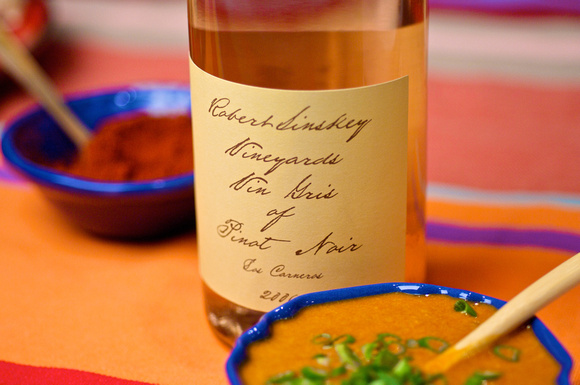 Robert Sinskey
Vineyards
Vin Gris
of
Pinot Noir
Los Carneros